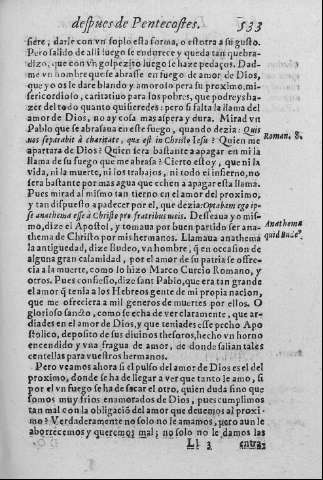 despues de Pentecostes. 533
siere, darle con vn soplo esta forma, o estotra a su gusto.
Pero salido de alli luego se endurece y queda tan quebra-
dizo, que con vn golpezito luego se haze pedaços. Dad-
me vn hombre que se abrasse en fuego de amor de Dios,
que y o os le dare blando y amoroso pera su proximo, mi-
sericordioso, caritatiuo para los pobres, que podreys ha-
zer del todo quanto quisieredes: pero si falta la llama del
amor de Dios, no ay cosa mas aspera y dura. Mirad vn
Pablo que se abrasaua en este fuego, quando dezia: Quis
nos separabit à charitate, quæ est in Christo Iesu? Quien me
apartara de Dios? Quien sera bastante a apagar en mi la
llama de su fuego que me abrasa? Cierto estoy, que ni la
vida, ni la muerte, ni los trabajos, ni todo el infierno, no
sera bastante por mas agua que echen a apagar esta llama.
Pues mirad al mismo tan tierno en el amor del proximo,
y tan dispuesto a padecer por el, que dezia: Optabam ego ip-
se anathema esse à Christo pro fratribus meis. Desseaua yo mis-
mo, dize el Apostol, y tomaua por buen partido ser ana-
thema de Christo por mis hermanos. Llamaua anathema
la antiguedad, dize Budeo, vn hombre, q̃ en ocasion de
alguna gran calamidad, por el amor de su patria se offre-
cia a la muerte, como lo hizo Marco Curcio Romano, y
otros. Pues confiesso, dize sant Pablo, que era tan grande
el amor q̃ tenia a los Hebreos gente de mi propia nacion,
que me ofreciera a mil generos de muertes por ellos. O
glorioso sancto, como se echa de ver claramente, que ar-
diades en el amor de Dios, y que teniades esse pecho Apo
stolico, deposito de sus diuinos thesoros, hecho vn horno
encendido y vna fragua de amor, de donde salian tales
centellas para vuestros hermanos.
Pero veamos ahora si el pulso del amor de Dios es el del
proximo, donde se ha de llegar a ver que tanto le amo, si
por el vn fuego se ha de sacar el otro, quien duda sino que
somos muy frios enamorados de Dios, pues cumplimos
tan mal con la obligaciõ del amor que deuemos al proxi-
mo? Verdaderamente no solo no le amamos, pero aun le
aborrecemos y queremos mal; no solo no le damos las
Ll 3 entra-
Roman. 8.
Anathema
quid Bude⁹.